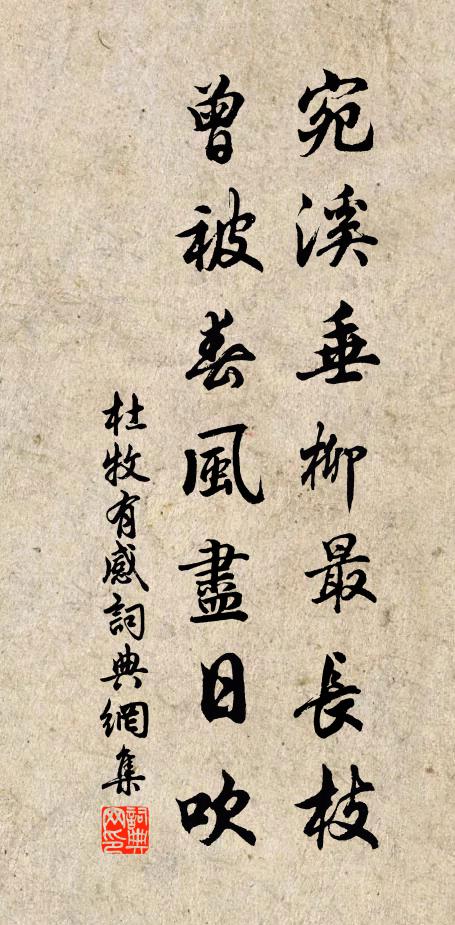 宛溪垂柳最長枝
曾被春風盡日吹
杜牧有感詞典網集
詞典網印